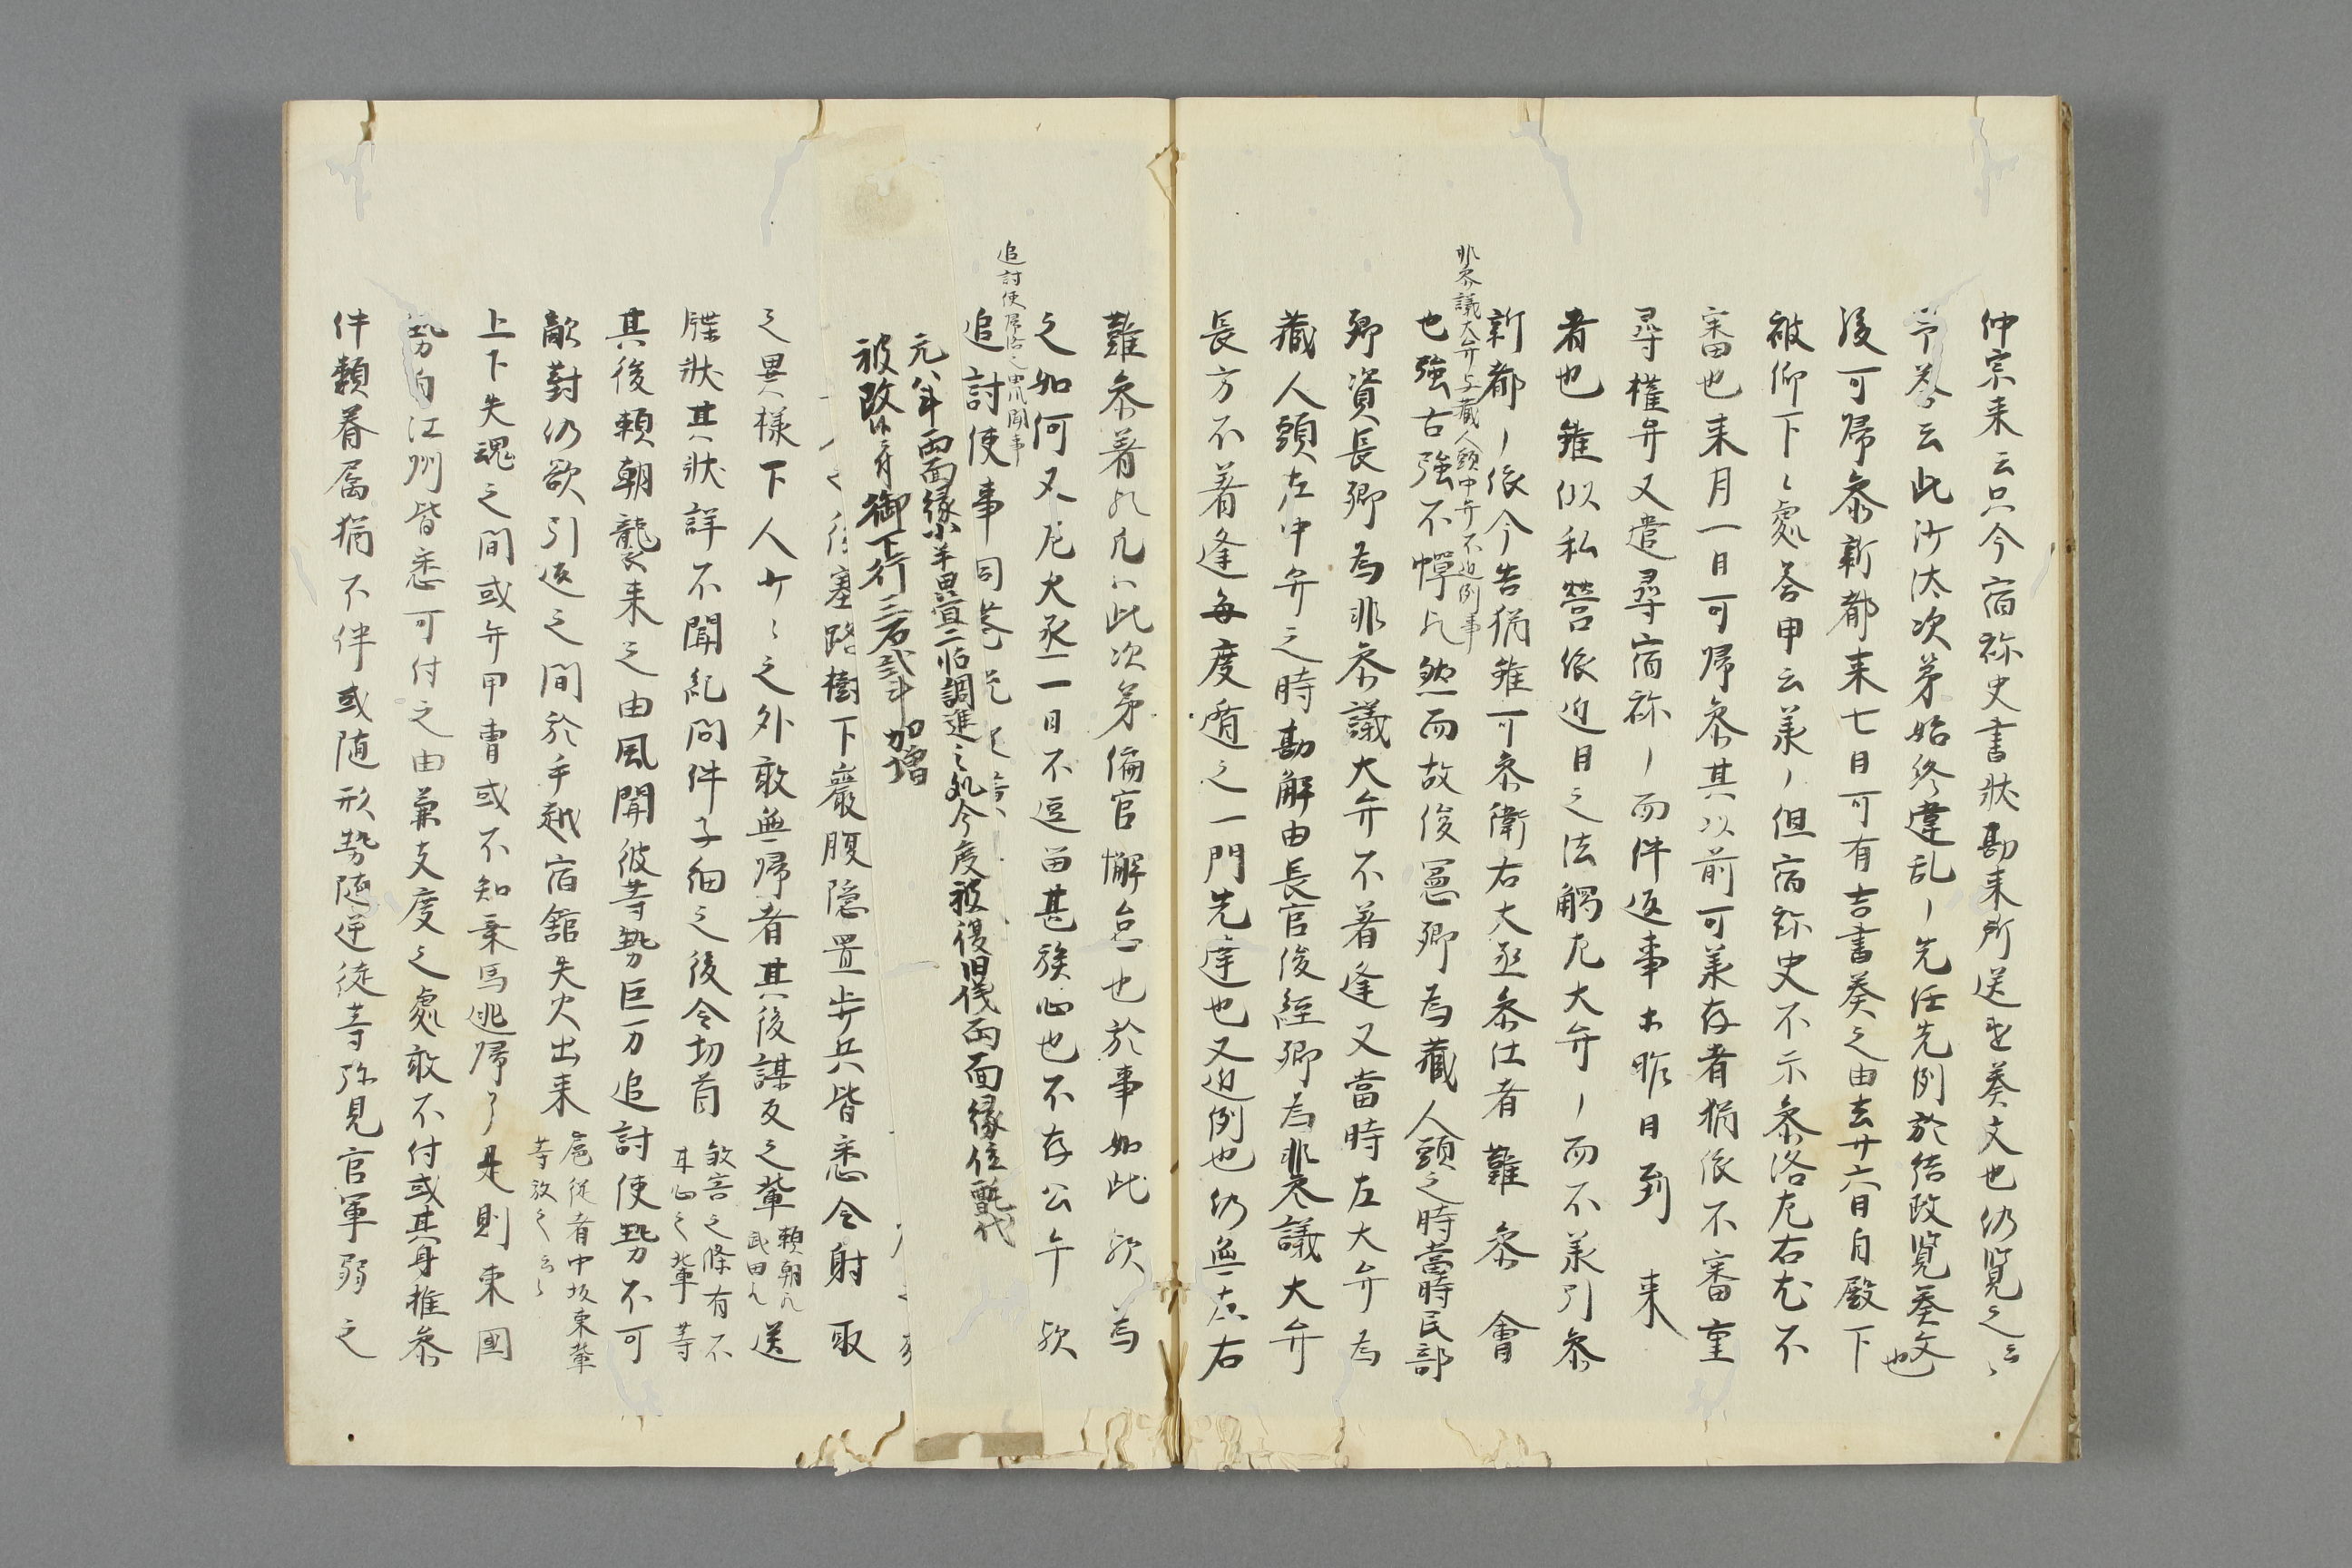 仲宗来云只今宿祢史書状勘来所送遣葵文也仍覧之云々
答云此沙汰次第始終違乱、先任先例於結政覧葵文也
後可帰参新都来七日可有吉書葵之由去廿六日自殿下
被仰下々處答申云兼、但宿祢史不示参洛左右尤不
審也来月一日可帰参其以前可兼存者猶依不審重
尋權弁又遣尋宿祢、而件返事木昨日到来
者也雖似私營依迫日之法觸左大弁、而不兼引参
新都、依今告猶雖可参衛右大丞参仕者難参會
非参議大弁与蔵人頭中弁不逢例事
也強右強不憚凡然而故俊憲卿為蔵人頭之時當時民部
卿資長卿為非参議大弁不着逢又當時左大弁為
蔵人頭左中弁之時勘解由長官俊經卿為非参議大弁
長方不着逢毎度遁之一門先達也又近例也仍無左右
難参着凡此次第倫官懈怠也於事如此欤為
之如何又左大丞一日不逗留甚族心也不存公平欤
追討使帰洛之由風聞事
追討使事
元八年両面縁小半畳二帖調進之処今度被復旧儀両面縁位氈代
被改仍三月御下行三石弐斗加増
塞路樹下巌腹隠置歩兵皆悉令射取
之異様下人少々之外敢無帰者其後謀反之輩頼朝凡武田凡送
牒状其状詳不聞紀問件子細之後令切首敛害之條有不甘心之輩等
其後頼朝襲来之由風聞彼等勢巨万追討使勢不可
敵對仍欲引返之間於手越宿舘失火出来扈従者中坂東輩等放之云々
上下失魂之間或弁甲冑或不知乗馬逃帰了是則東國
勢自江州皆悉可付之由兼支度之處敢不付或其身推参
件類眷属猶不伴或随形勢随逆徒等弥見官軍弱之